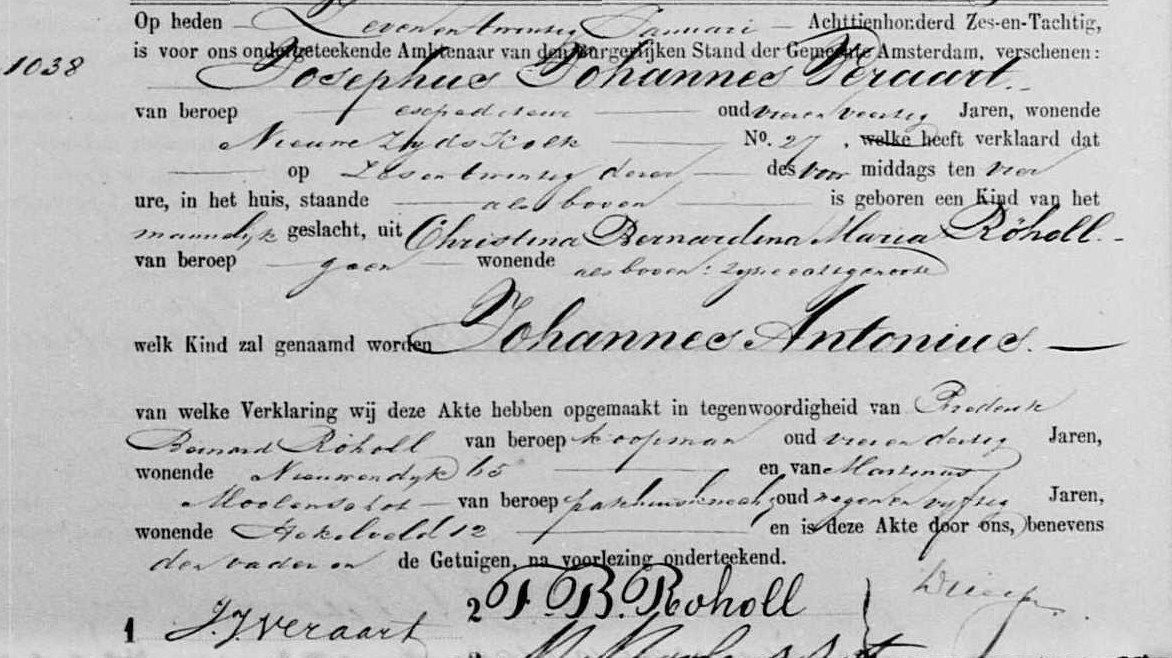 Op heden Zevenentwintig Januari Achttienhonderd Zes-en-Tachtig,
is voor ons ondergeteekende Ambtenaar van den Burgerlijken Stand der Gemeente Amsterdam, verschenen:
1038 Josephus Johannes Veraart
van beroep expediteur oud vierenveertig Jaren, wonende
Nieuwe Zijds Kolk No. 27, welke heeft verklaard dat
op Zesentwintig dezer des voor middags ten vier
ure, in het huis, staande als boven is geboren een Kind van het
mannelijk geslacht, uit Christina Bernardina Maria Röholl
van beroep geen wonende als boven: zijne echtgenoote
welk Kind zal genaamd worden Johannes Antonius.
van welke Verklaring wij deze Akte hebben opgemaakt in tegenwoordigheid van Frederik
Bernard Röholl van beroep koopman oud vierendertig Jaren,
wonende Nieuwendijk 65 en van Martinus
van beroep oud negenenvijftig Jaren,
wonende 12 en is deze Akte door ons, benevens
den vader en de Getuigen, na voorlezing onderteekend.
2 F. B. Roholl
1 J. J Veraart